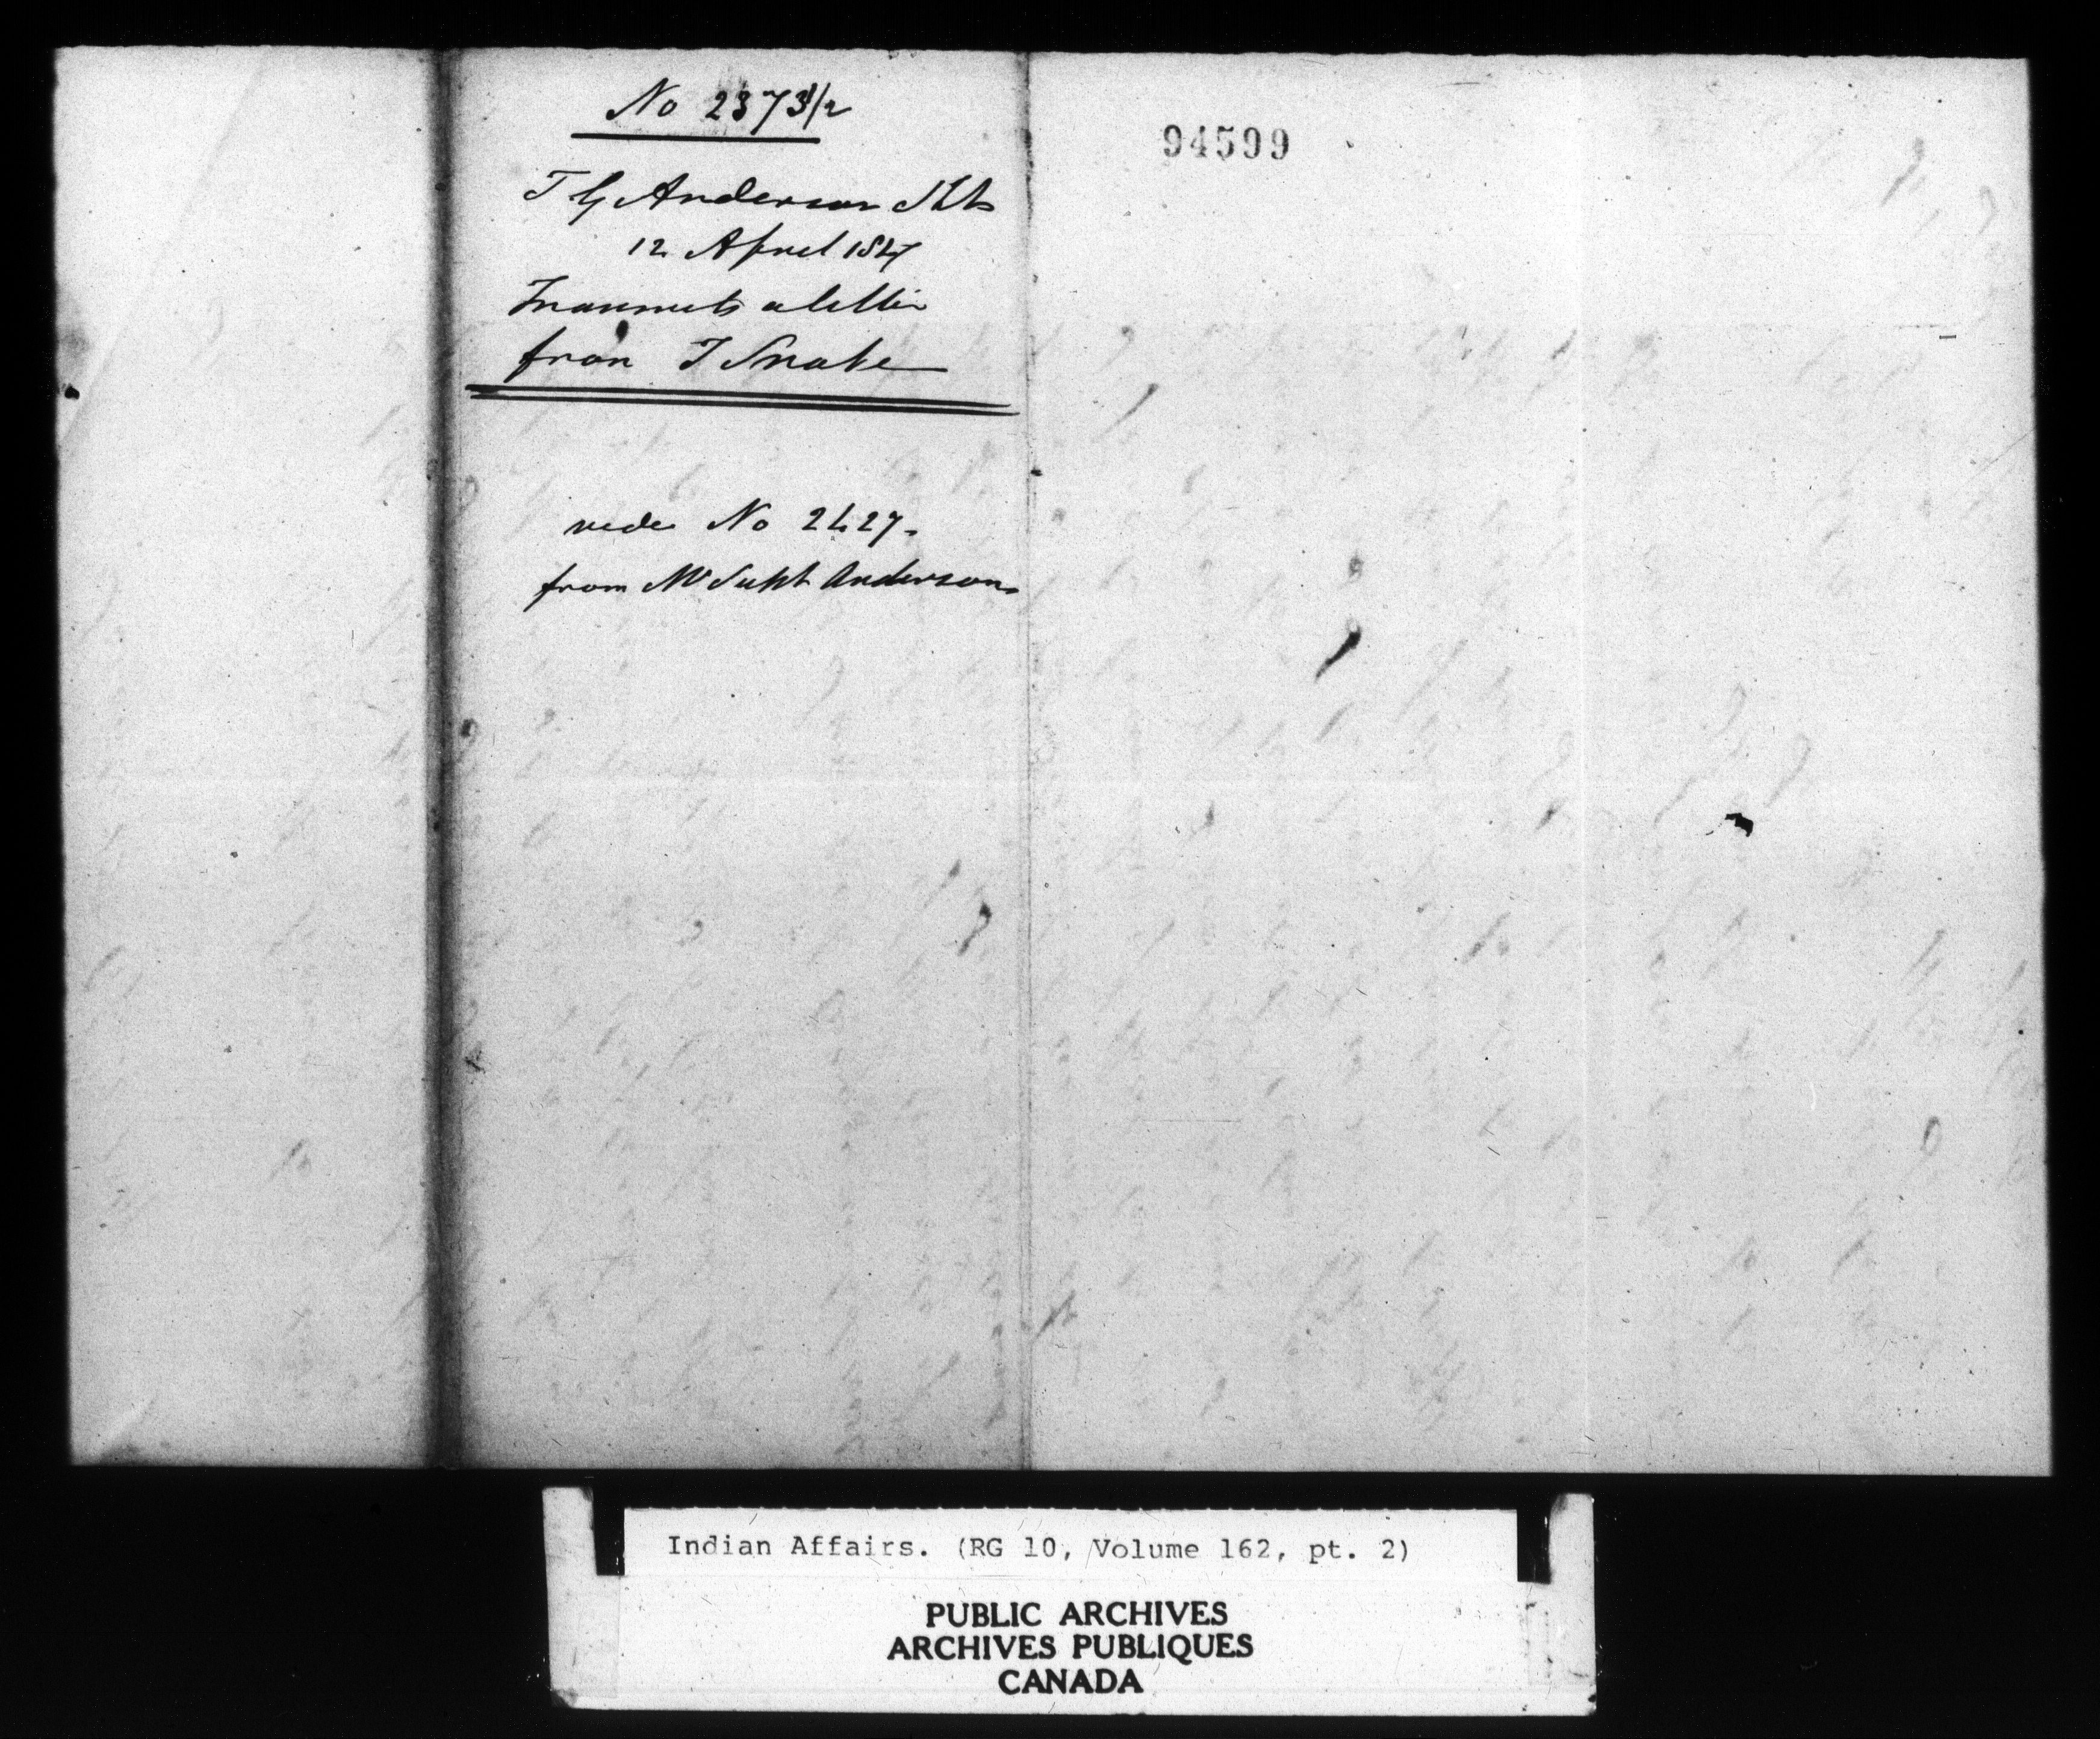 No 2373 1/2
T G Anderson
12 April 1847
Transmits a letter
from J Snake
vide No 2427.
from Mr Supt Anderson
94599
Indian Affairs. (RG 10, Volume 162, pt. 2)
PUBLIC ARCHIVES
ARCHIVES PUBLIQUES
CANADA